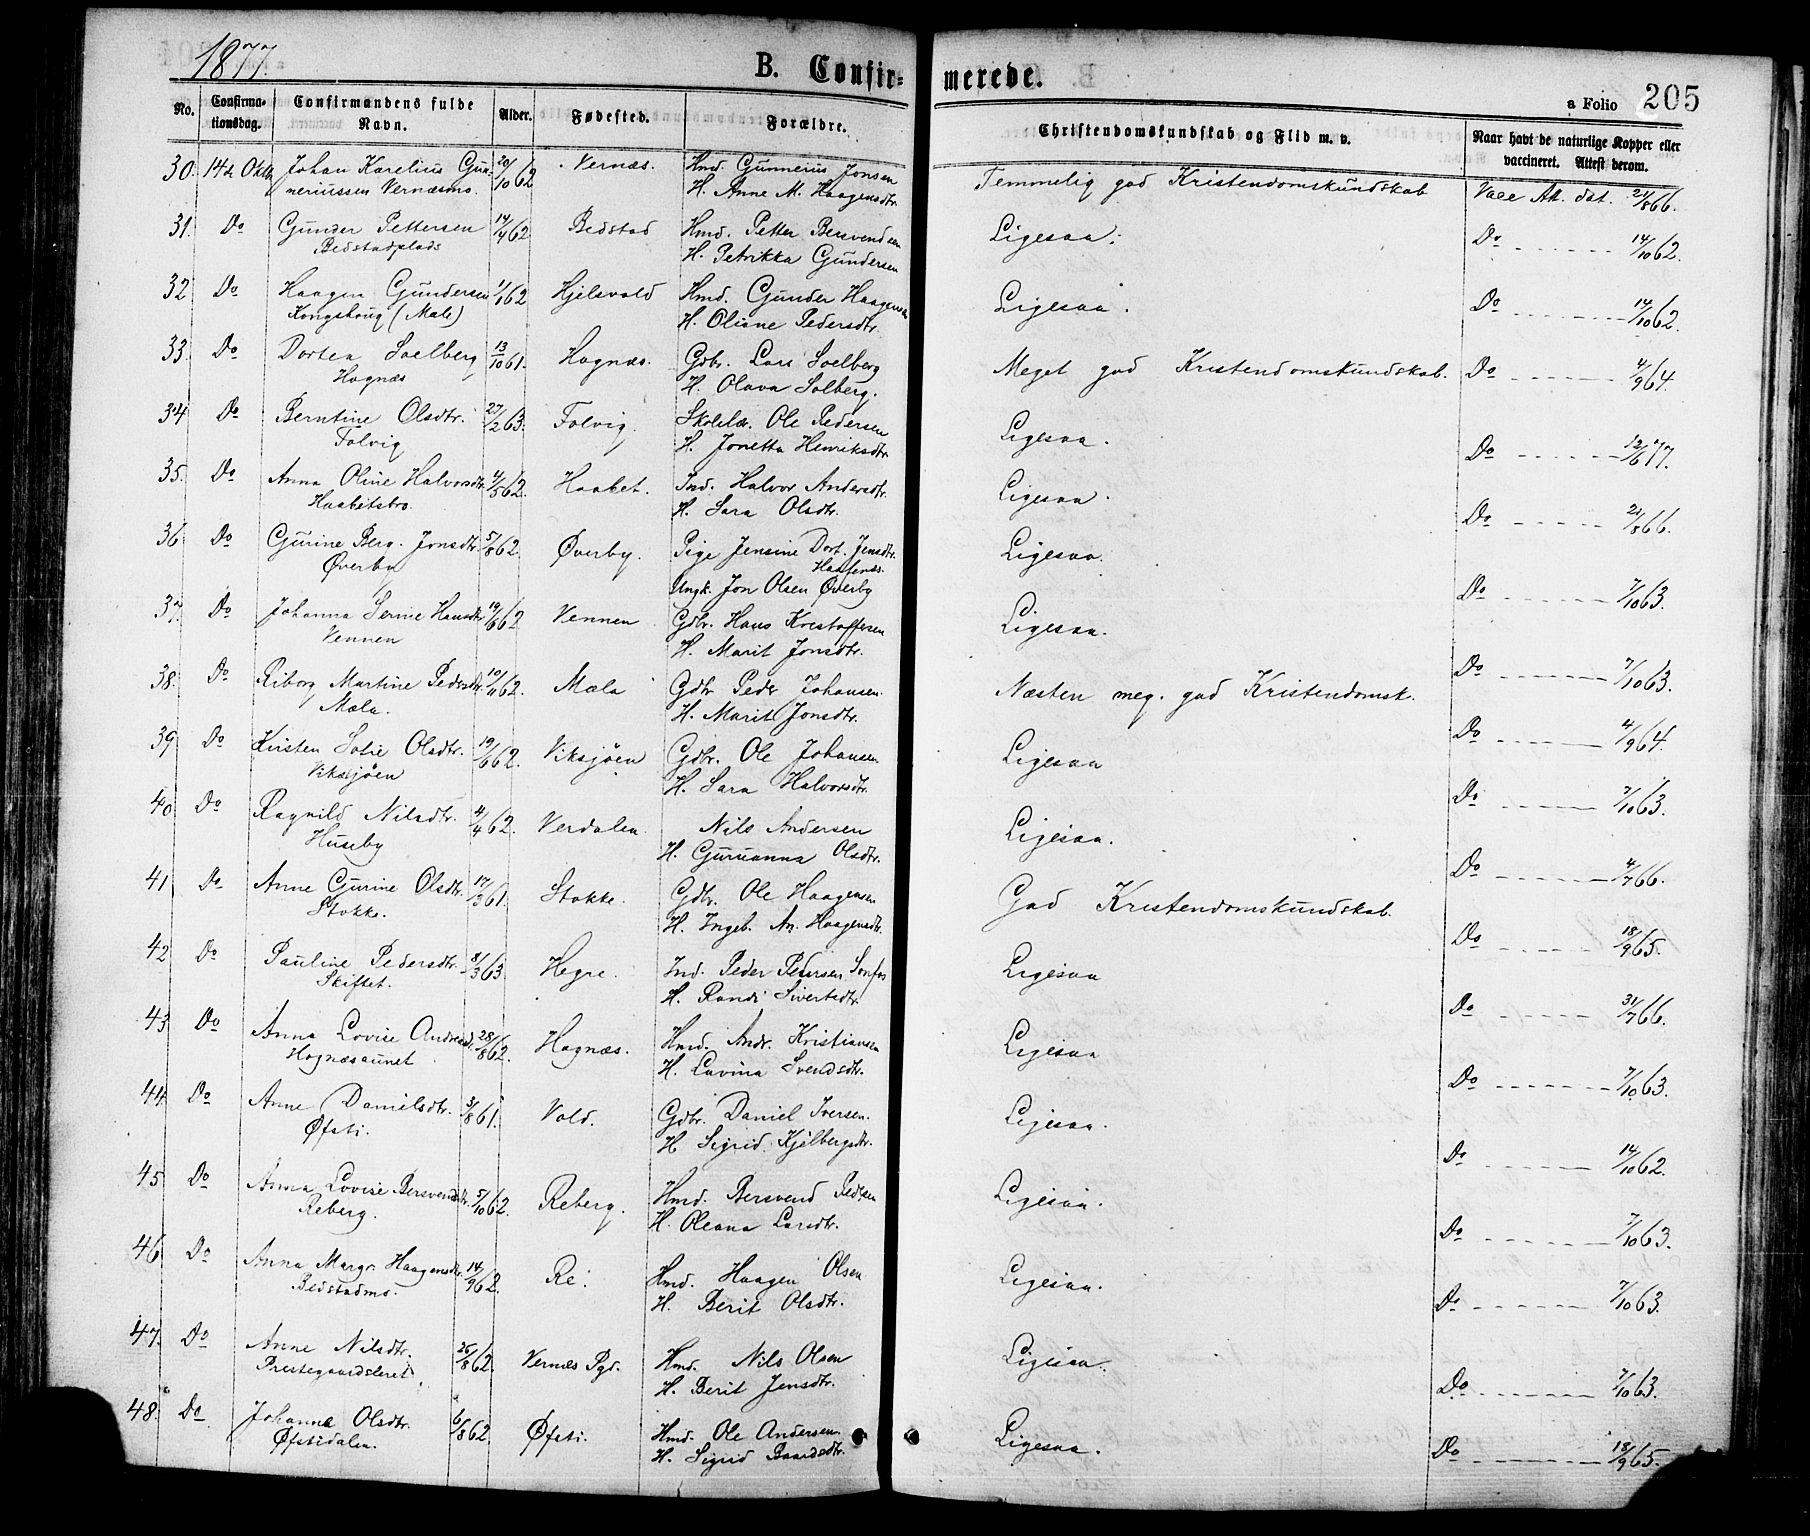 1877.
B. Confir-
merede.
a Folio 205
No. Confirma-tionsdag. Confirmandens fulde Navn. Alder. Fødested. Forældre. Christendomskundskab og Flid m. v. Naar havt de naturlige Kopper eller vaccineret. Attest derom.
30. 14de Oktbr Johan Karelius Gun- 20/10 62 Vernæs. Hmd. Gunnerius Jonsen Temmelig god Kristendomskundskab Vacc. Att. dat. 21/8 66.
neriussen Vernæsmo. H. Anne M. Haagensdtr.
31. Do Gunder Pettersen 14/4 62 Bedstad Hmd. Petter Bersvendsen Ligesaa. Do 14/10 62.
Bedstadplads H. Petrikka Gundersen
32 Do Haagen Gundersen 1/1 62 Hjelsvold Hmd. Gunder Haagensen Ligesaa. Do 14/10 62.
Kongshoug (Mæle) H. Oliane Pedersdtr.
33. Do Dortea Solberg 13/10 61. Hognæs. Gdbr. Lars Solberg Meget god Kristendomskundskab. Do 4/9 64.
Hognæs H. Olava Solberg.
34 Do Berntine Olsdtr. 27/2 63. Folvig. Skolelær. Ole Pedersen Ligesaa. Do 12/6 77.
Folvig H. Jonetta Henriksdtr.
35. Do Anna Oline Halvorsdtr 4/5 62. Haabet. Ind. Halvor Andersdtr. Ligesaa. Do 21/8 66.
Haabetsbro. H. Sara Olsdtr.
36 Do Gurine Berg. Jonsdtr. 5/8 62. Øverby. Pige Jensine Dort. Jensdtr. Ligesaa. Do 7/10 63.
Øverby
Ungk. Jon Olsen Øverby
37. Do Johanna Hansdtr. 19/6 62 Vennen Gdbr. Hans Kristoffersen Ligesaa. Do 7/10 63.
Vennen H. Marit Jonsdtr.
38. Do Riborg Martine Pedersdtr. 10/11 62. Mæla Gdbr Peder Johansen. Næsten meg. god Kristendomsk. Do 4/9 64.
Mæla. H. Marit Jonsdtr.
39 Do Kirsten Sofie Olsdtr. 19/6 62. Viksjøen Gdbr. Ole Johansen Ligesaa Do 7/10 63.
Viksjøen H. Sara Halvorsdtr.
40. Do Ragnild Nilsdtr. 4/4 62. Verdalen. Nils Andersen Ligesaa. Do 4/7 66.
Huseby H. Guruanna Olsdtr.
41 Do Anne Gurine Olsdtr. 17/3 61. Stokke. Gdbr. Ole Haagensen God Kristendomskundskab. Do 18/9 65.
Stokke. H. Ingeb. An. Haagensdtr.
42 Do Pauline Pedersdtr. 8/3 63 Hegre. Ind. Peder Pedersen Ligesaa Do 31/7 66.
Skiftet. H. Randi Sivertsdtr.
43. Do Anna Lovise Andreasdtr. 28/8 62. Hognæs. Hmd. Andr. Kristiansen Ligesaa Do 7/10 63.
Hognæsaunet H. Lavina Svendsdtr.
44. Do Anne Danielsdtr. 3/8 61. Vold. Gdbr. Daniel Iversen. Ligesaa. Do 14/10 62.
Øfsti. H Sigrid Kjelbergsdtr.
45 Do Anna Lovise Bersvendsdtr. 5/10 62. Reberg. Hmd. Bersvend Pedersen Ligesaa. Do 7/10 63.
Reberg. H. Oleana Larsdtr.
46 Do Anna Margr. Haagensdtr. 14/9 62. Re. Hmd. Haagen Olsen Ligesaa. Do 7/10 63.
Bedstadmo. H. Berit Olsdtr.
47. Do Anne Nilsdtr. 26/8 62. Vernæs Pgd. Hmd. Nils Olsen Ligesaa. Do 7/10 63.
Prestegaardsleret. H. Berit Jensdtr.
48. Do Johanna Olsdtr. 6/8 62 Øfsti. Hmd. Ole Andersen. Ligesaa. Do 18/9 65.
Øfstidalen. H. Sigrid Baardsdtr.